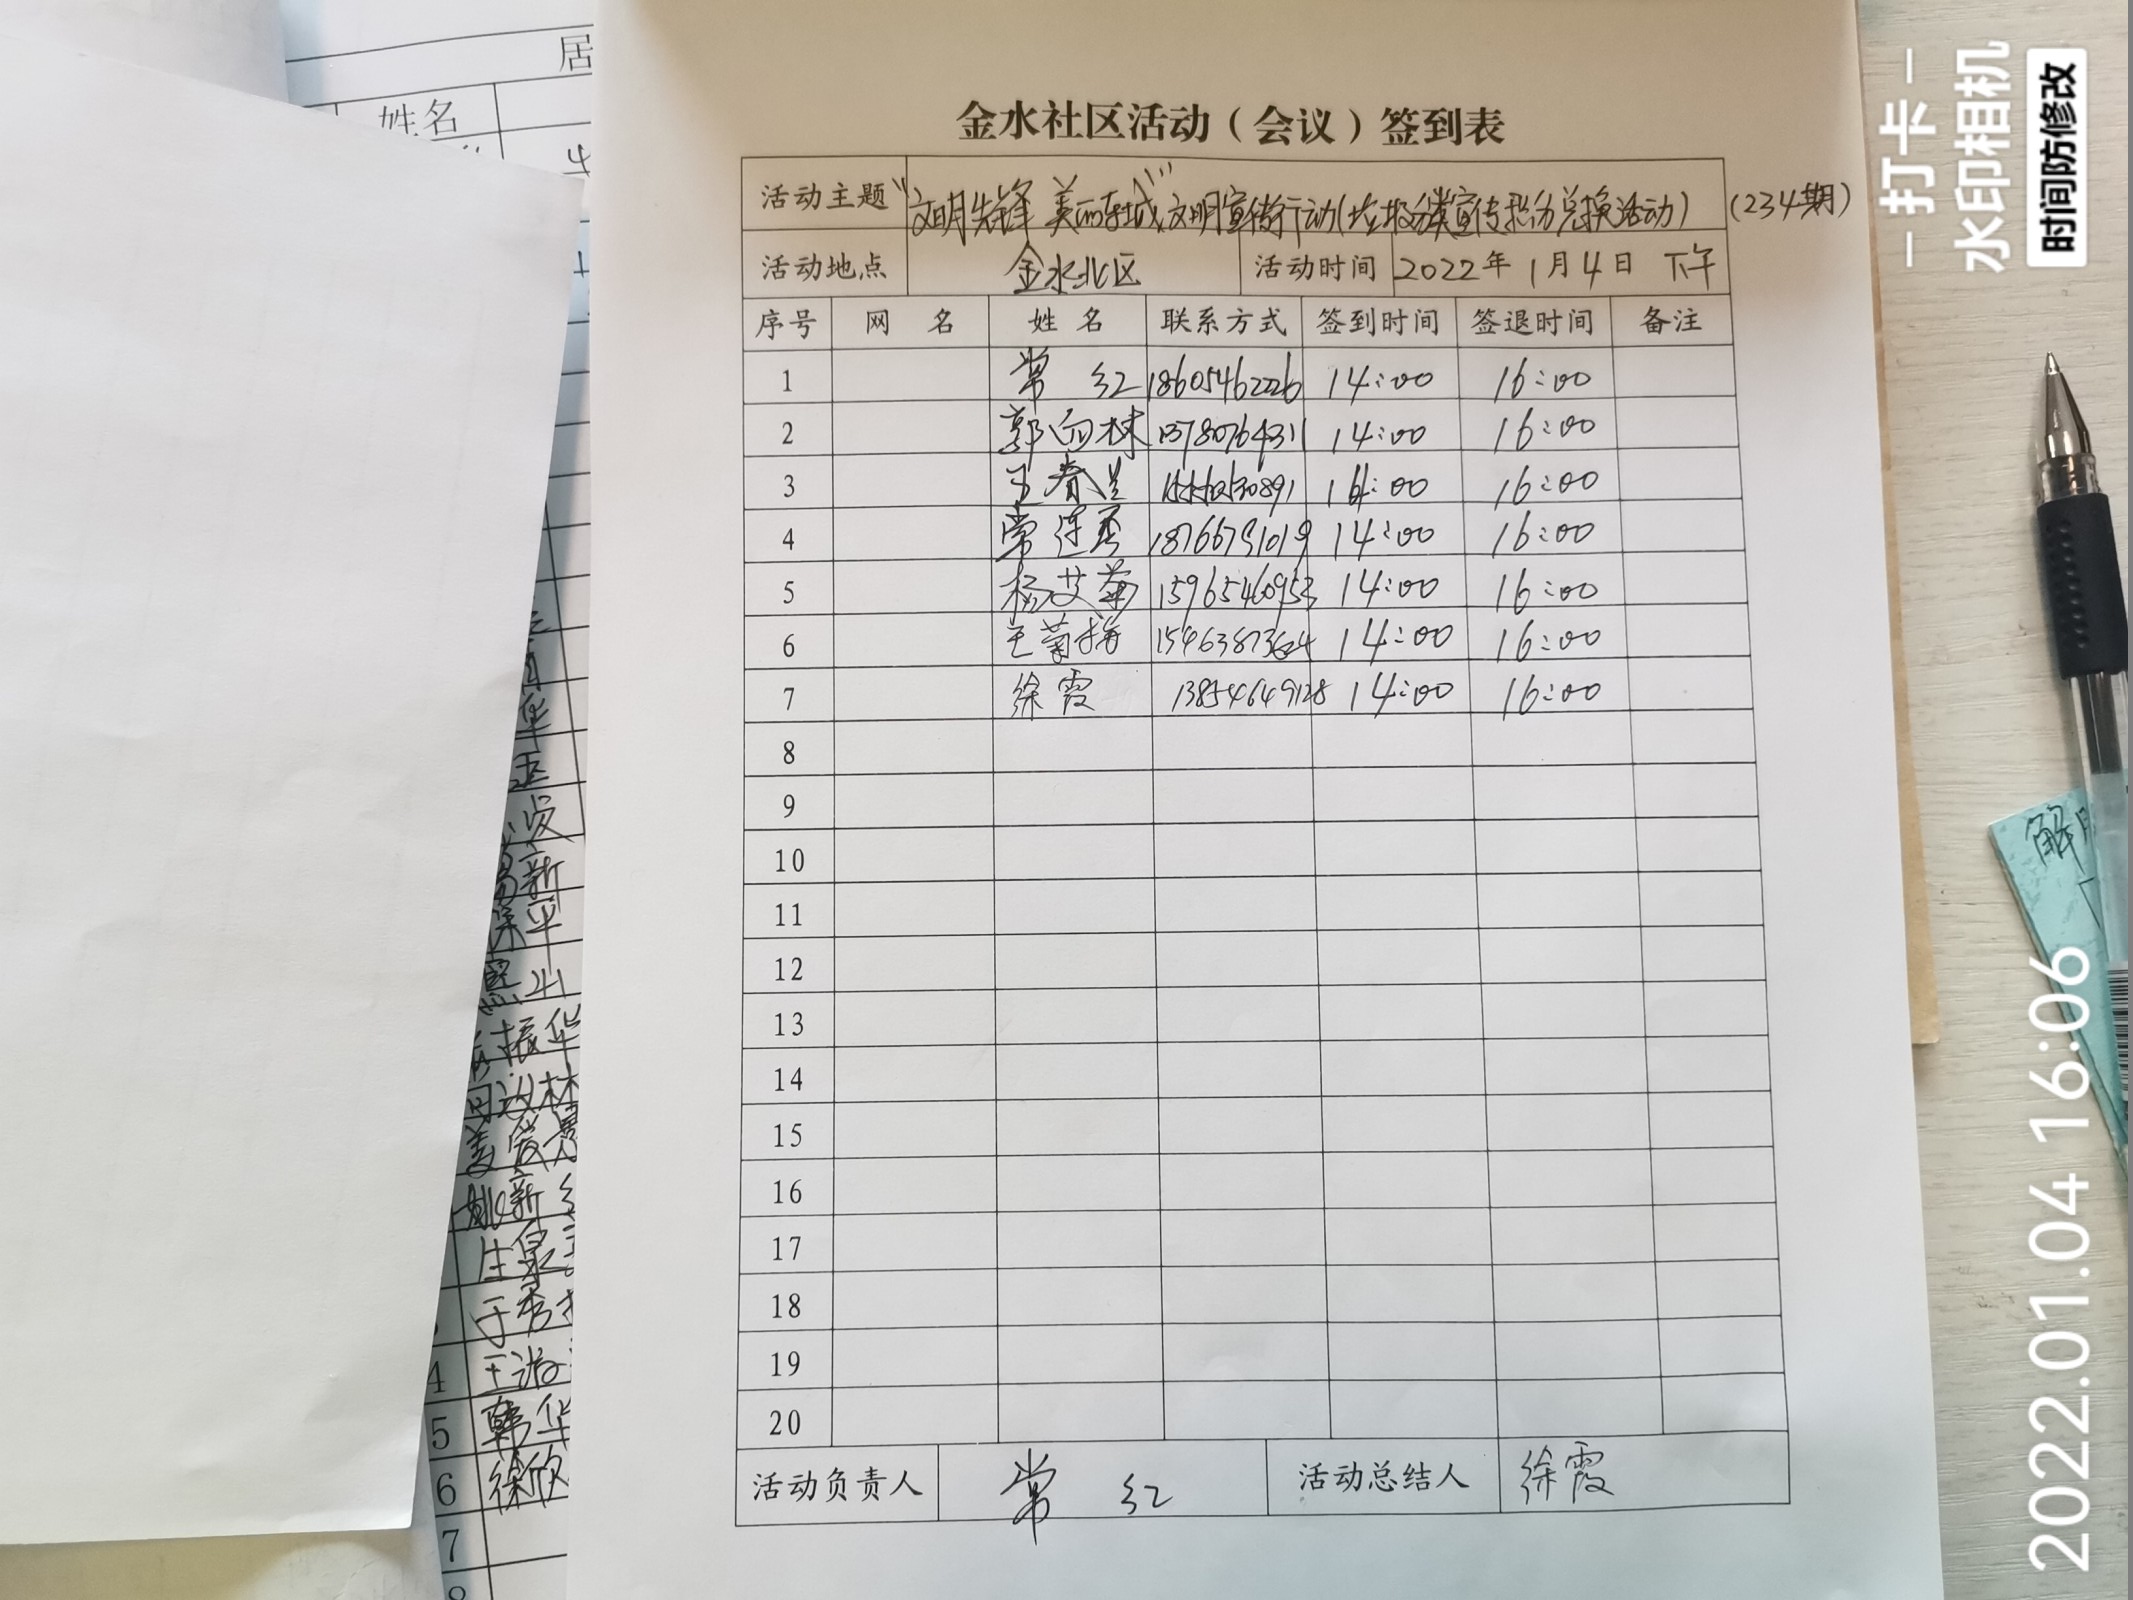 居
姓名
金水社区活动（会议）签到表
活动主题 "文明先锋 美丽东城"文明宣传行动(垃圾分类宣传积分兑换活动) (234期)
活动地点 金水北区 活动时间 2022年1月4日 下午
序号 网 名 姓 名 联系方式 签到时间 签退时间 备注
1 常 红 18605462226 14:00 16:00
2 郭向林 13780764311 14:00 16:00
3 王春兰 14:00 16:00
4 常连香 14:00 16:00
5 杨艾菊 15965460953 14:00 16:00
6 王菊梅 14:00 16:00
7 徐霞 13854649128 14:00 16:00
8
9
10
11
12
13
14
15
16
17
18
19
20
活动负责人 常 红 活动总结人 徐霞
振华
姚新
4 王
5 韩华
6 徐欣
7
8
解
一打卡一
水印相机
时间防修改
2022.01.04 16:06